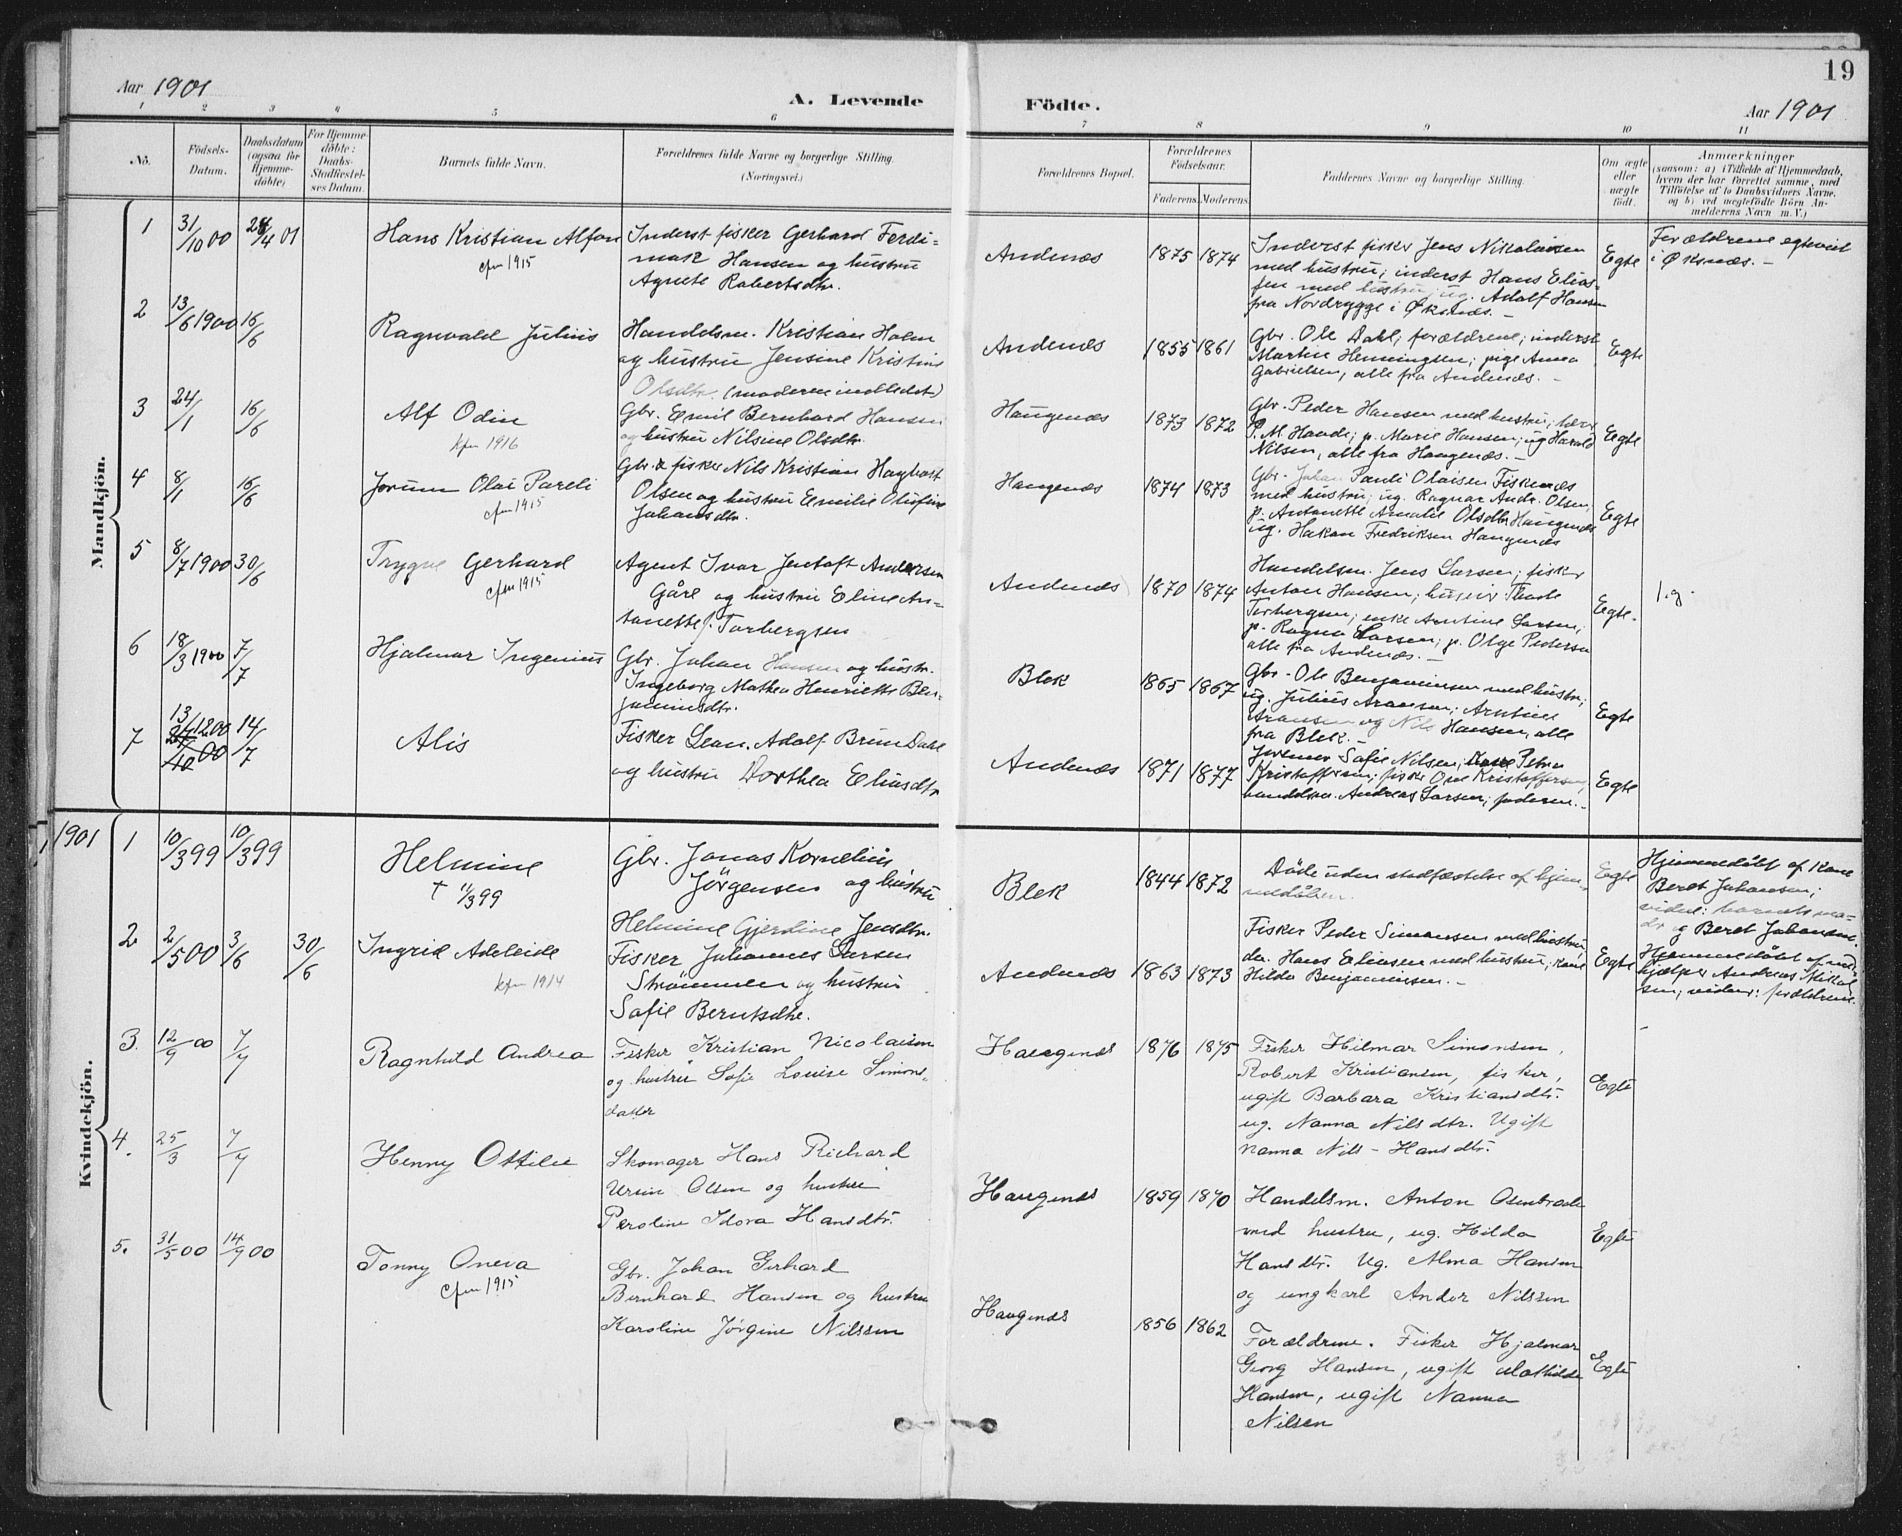 19
Aar 1901
A. Levende Födte.
Aar 1901
1 2 3 4 5 6 7 8 9 10 11
No.
Födsels-
Datum.
Daabsdatum
(ogsaa for
Hjemme-
döbte)
For Hjemme-
döbte:
Daabs-
Stadfæstel-
ses Datum.
Barnets fulde Navn.
Forældrenes fulde Navne og borgerlige Stilling.
(Næringsvei.)
Forældrenes Bopæl.
Forældrenes
Födselsaar.
Faderens. Moderens.
Faddernes Navne og borgerlige Stilling.
Om ægte
eller
uægte
födt.
Anmærkninger
(saasom: a) i Tilfælde af Hjemmedaab,
hvem der har forrettet samme, med
Tilföielse af to Daabsvidners Navne,
og b) ved uægtefödte Börn An-
melderens Navn m. V.)
Mandkjön.
1 31/10 00 28/4 01
Hans Kristian Alfon
cfm 1915
Inderst fisker Gerhard Ferdi-
mak Hansen og hustru
Agnete Robertsdtr.
Andenæs 1875 1874
Inderst fisker Jens Nikolaisen
med hustru; inderst Hans Elias-
sen med hustru; ug. Adolf Hansen
fra Nordrygge i Øksnæs. -
Egte
Forældrene egteviet
i Øksnæs. -
2 13/6 1900 16/6
Ragnvald Julius
Handelsm. Kristian Holm
og hustru Jensine Kristine
Olsdtr. (moderen indledet)
Andenæs 1855 1861
Gbr. Ole Dahl; forældrene; inderst
Martin Henningsen; pige Anna
Gabrielsen, alle fra Andenæs. -
Egte
3 24/1 16/6
Alf Odin
kfm 1916
Gbr. Emil Bernhard Hansen
og hustru Nilsine Olsdtr.
Haugenæs 1873 1872
Gbr. Peder Hansen med hustru; lærer
P. M. Haude; p. Marie Hansen; ug Harald
Nilsen, alle fra Haugenæs. -
Egte
4 8/1 16/6
Jorum Olai Pareli
cfm 1915
Gbr. & fisker Nils Kristian Hagbart
Olsen og hustru Emilie Olufine
Johansdtr.
Haugenæs 1874 1873
Gbr. Johan Pauli Olaisen Fiskenæs
med hustru; ug. Ragnar Andr. Olsen,
p. Antonette Amalie Olsdtr Haugenæs
ug. Hakon Fredriksen Haugenæs
Egte
5 8/7 1900 30/6
Trygve Gerhard
cfm 1915
Agent Ivar Jentoft Andersen
Gåre og hustru Eline An-
tonette f. Torbergsen
Andenæs 1870 1874
Handelsm. Jens Larsen; fisker
Anton Hansen; Thode
Torbergsen; enke Arntine Larsen;
p. Ragna Larsen; p. Olge Pedersen
alle fra Andenæs. -
Egte.
1. g.
6 18/3 1900 7/7
Hjalmar Ingenius
Gbr. Johan Hansen og hustr.
Ingeborg Mathea Henriette Ben-
jaminsdtr.
Blek 1865 1867
Gbr. Ole Benjaminsen med hustru;
ug. Julius Aronsen; Arntine
Aronsen og Nils Hansen, alle
fra Blek. -
Egte
7 13/12 00 14/7
Alis
Fisker Lean. Adolf Brun Dahl
og hustru Dorthea Eliasdtr
Andenæs 1871 1877
Jormor Sofie Nilsen, Petra
Kristoffersen; fisker One Kristoffersen,
handelsm. Andreas Larsen; faderen. -
Egte
Kvindekjön.
1901 1 10/3 99 10/3 99
Helmine
† 11/3 99
Gbr. Jonas Kornelius
Jörgensen og hustru
Helmine Gjerdine Jensdtr.
Blek 1844 1872
Döde uden stadfæstelse af hjem-
medåben.
Egte
Hjemmedöbt af Kone
Beret Johansen;
vidne: barnets mo-
der og Beret Johansen.
2 2/5 00 3/6 30/6
Ingrid Adeleide
kfm 1914
Fisker Johannes Larsen
Strömmen og hustru
Sofie Berntsdtr.
Andenæs 1863 1873
Fisker Peder Simonsen med hustru,
do. Hans Eliasen med hustru; kone
Hilda Benjaminsen. -
Egte
Hjemmedöbt af
hjælper Andreas Mikal-
sen; vidner: forældrene.
3. 12/9 00 7/7
Ragnhild Andrea
Fisker Kristian Nicolaisen
og hustru Sofie Louise Simons-
datter
Haugenæs 1876 1875
Fisker Hilmar Simonsen,
Robert Kristiansen, fisker,
ugift Barbara Kristiansdtr.
ug. Nanna Nilsdtr. Ugift
Nanna Nils - Hansdtr.
Egte
4. 25/3 7/7
Henny Ottilie
Skomager Hans Richard
Ursin Olsen og hustru
Peroline Idora Hansdtr.
Haugenæs 1859 1870
Handelsm. Anton Osenbrode
med hustru, ug. Hilda
Hansdtr. Ug. Alma Hansen
og ungkarl Andor Nilssen
Egte
5. 31/5 00 14/7 00
Tonny Oneva
cfm 1915
Gbr. Johan Gerhard
Bernhard Hansen og hustru
Karoline Jørgine Nilssen
Haugenæs 1856 1862
Forældrene. Fisker Hjalmar
Georg Hansen, ugift Mathilde
Hansen, ugift Nanna
Nilsen
Egte